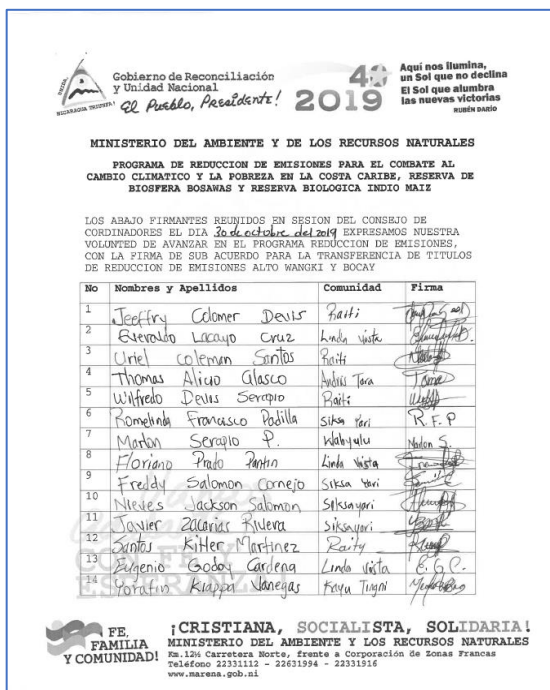 UNIDA,
NICARAGUA TRIUNFA!
Gobierno de Reconciliación
y Unidad Nacional
El Pueblo, Presidente!
40
2019
Aquí nos ilumina,
un Sol que no declina
El Sol que alumbra
las nuevas victorias
RUBÉN DARÍO
MINISTERIO DEL AMBIENTE Y DE LOS RECURSOS NATURALES
PROGRAMA DE REDUCCION DE EMISIONES PARA EL COMBATE AL
CAMBIO CLIMATICO Y LA POBREZA EN LA COSTA CARIBE, RESERVA DE
BIOSFERA BOSAWAS Y RESERVA BIOLOGICA INDIO MAIZ
LOS ABAJO FIRMANTES REUNIDOS EN SESION DEL CONSEJO DE
CORDINADORES EL DIA 30 de octubre del 2019 EXPRESAMOS NUESTRA
VOLUNTED DE AVANZAR EN EL PROGRAMA REDUCCION DE EMISIONES,
CON LA FIRMA DE SUB ACUERDO PARA LA TRANSFERENCIA DE TITULOS
DE REDUCCION DE EMISIONES ALTO WANGKI Y BOCAY
No Nombres y Apellidos Comunidad Firma
1 Jeeffry Colomer Devis Raiti
2 Everaldo Lacayo Cruz Linda vista
3 Uriel coleman Santos Raiti
4 Thomas Alicio Glasco Andris Tara
5 Wilfredo Devis Serapio Raiti
6 Romelinda Francisco Padilla Siksa Yari R.F.P
7 Marlon Serapio P. Walayulu
8 Floriano Prado Pantin Linda Vista
9 Freddy Salomon Cornejo Siksa Yari
10 Nieves Jackson Salomon Siksayari
11 Javier Zacarias Rivera Siksayari
12 Santos Kitler Martinez Raity
13 Eugenio Godoy Cardena Linda vista E.G.C.
14 Yoratin Klappa Vanegas Kayu Tingni
CON FE Y
ESPERANZA
FE,
FAMILIA
Y COMUNIDAD!
¡CRISTIANA, SOCIALISTA, SOLIDARIA!
MINISTERIO DEL AMBIENTE Y LOS RECURSOS NATURALES
Km.12½ Carretera Norte, frente a Corporación de Zonas Francas
Teléfono 22331112 - 22631994 - 22331916
www.marena.gob.ni